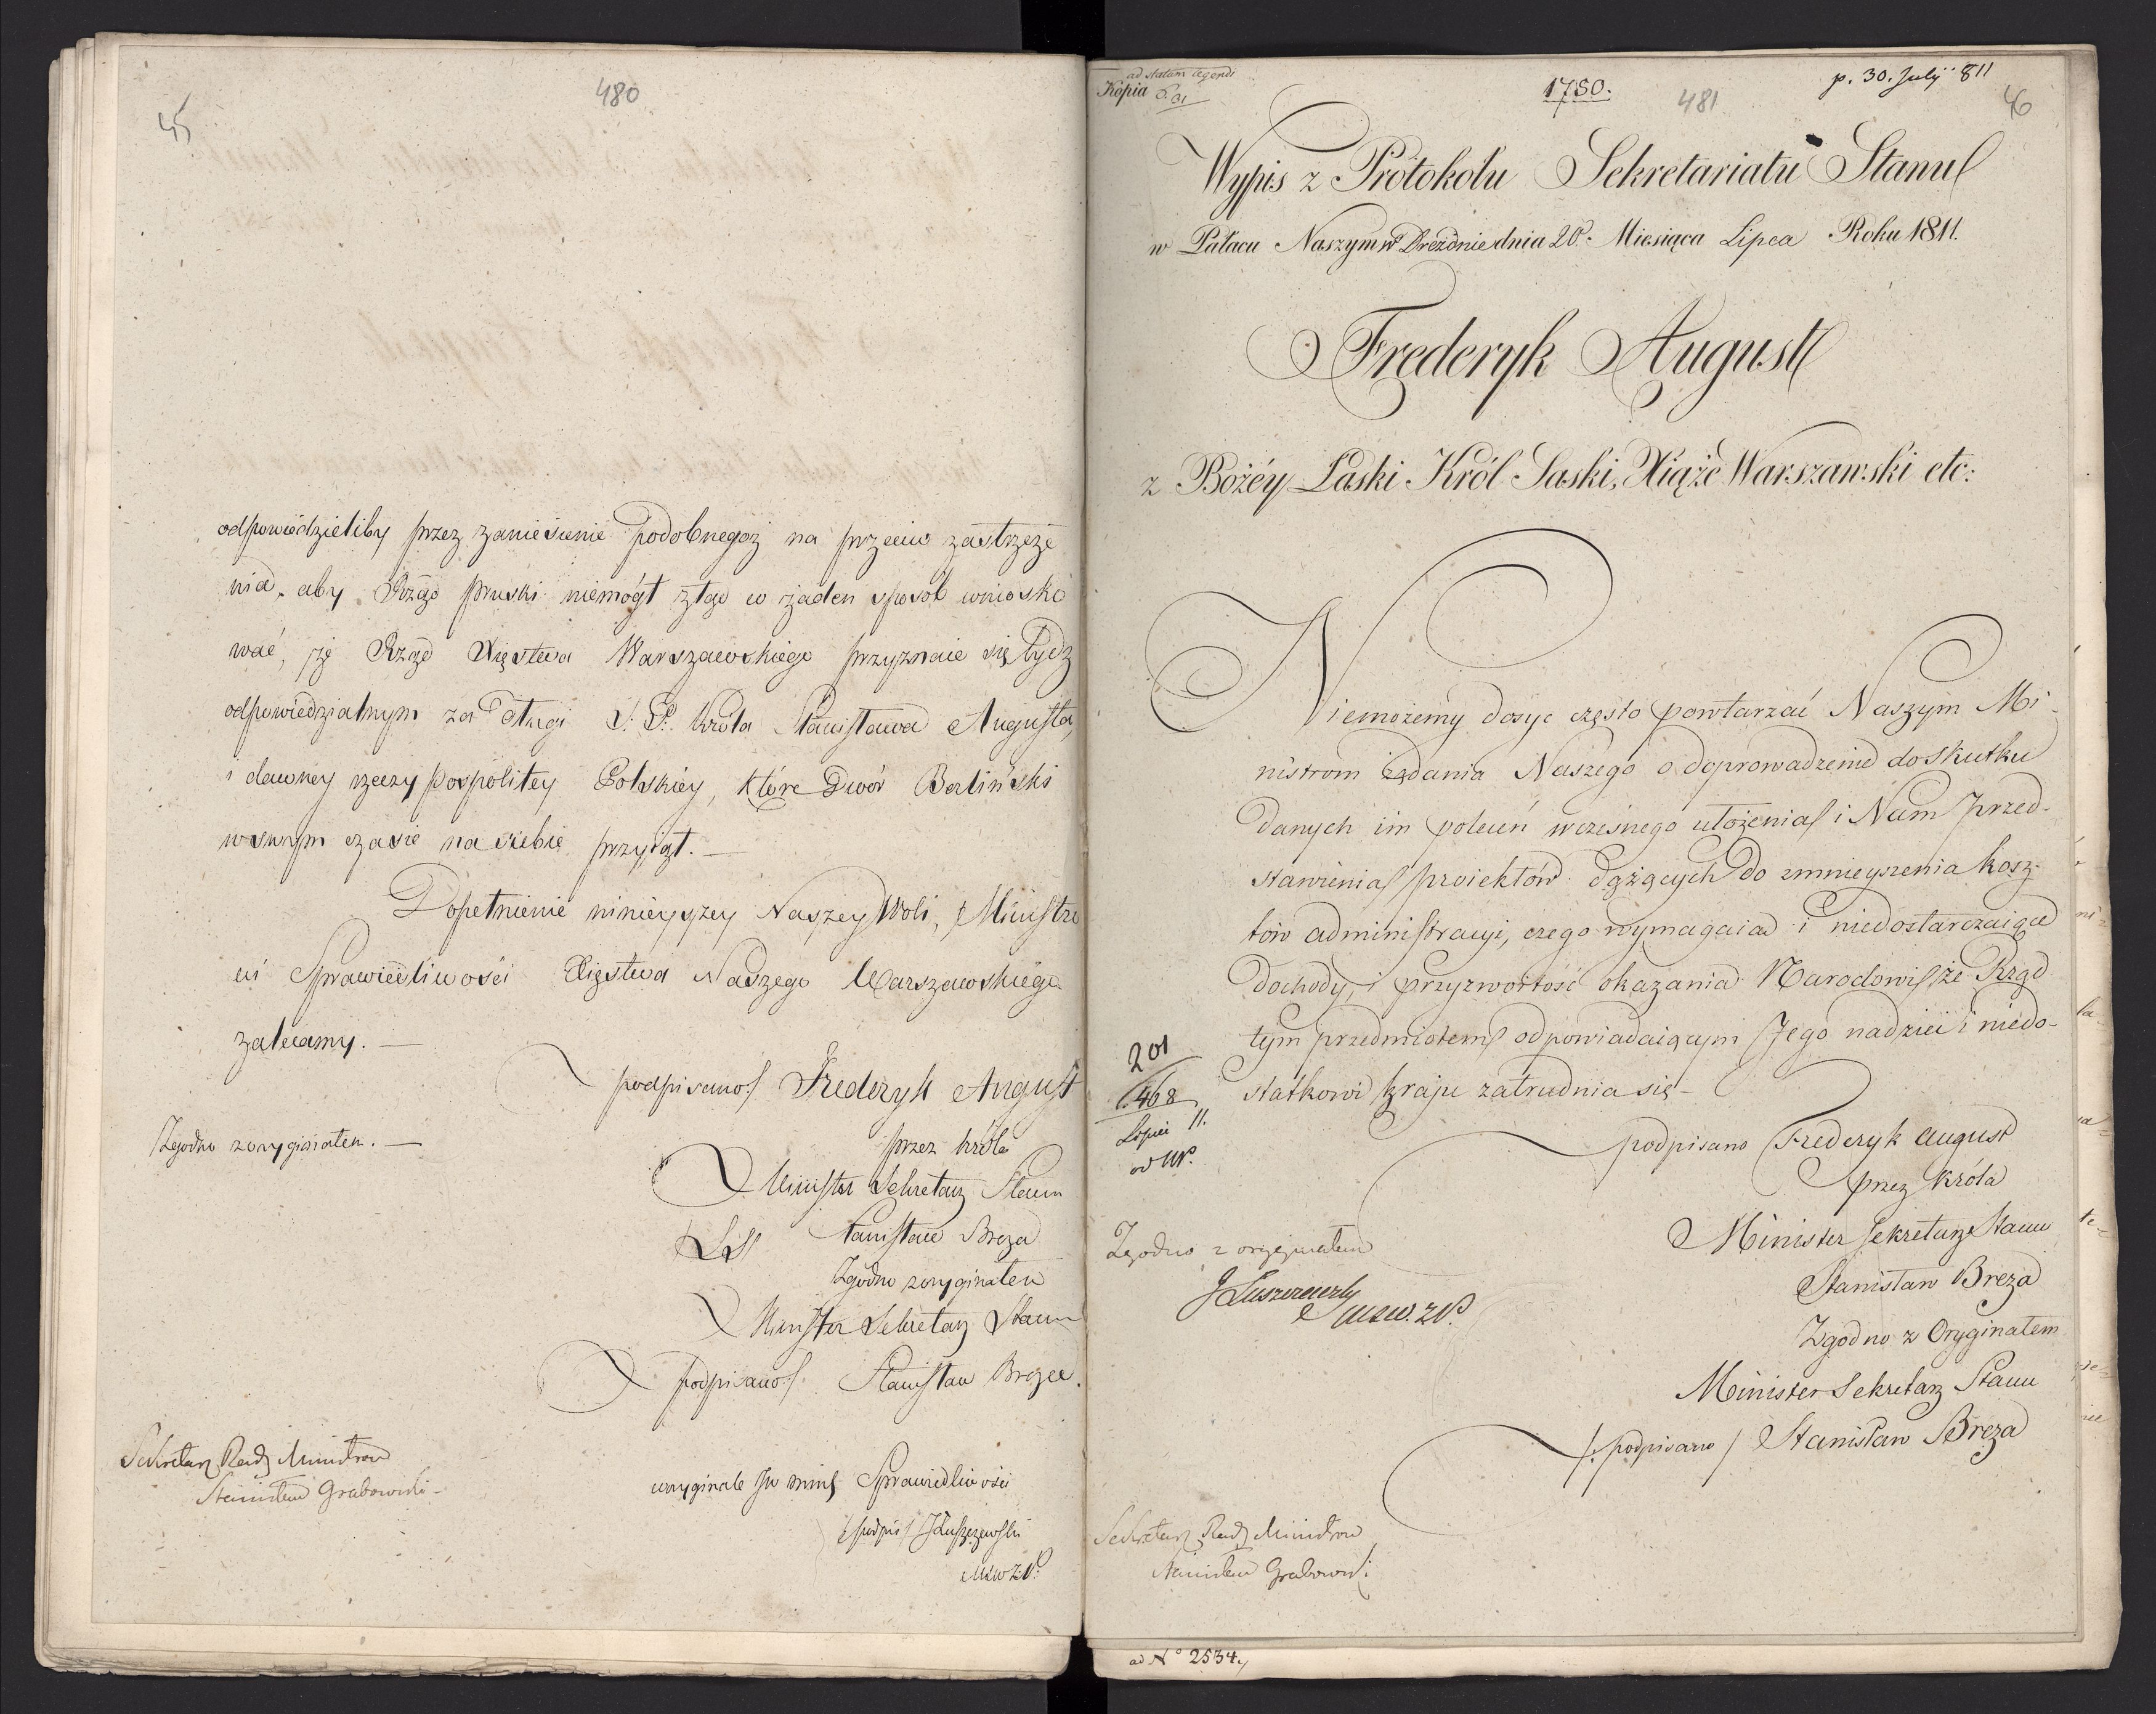 480
45
odpowiedzieliby przez zaniesienie podobnegoż na przeciw zastrzeże
nia, aby Rząd pruski niemógł ztąd w żaden sposób wniosko
wać, że Rząd Xięstwa Warszawskiego przyznaie się bydź
odpowiedzialnym za Długi Ś: P: Króla Stanisława Augusta,
i dawney rzeczy pospolitey Polskiéy, które Dwór Berliński
wswym czasie na siebie przyiął. —
Dopełnienie ninieyszey Naszey Woli, Ministro
wi Sprawiedliwości Xięstwa Naszego Warszawskiego
zalecamy. —
podpisano/ Frederyk August
Zgodno zoryginałem. —
przez króla
Minister Sekretarz Stanu
LS Stanisław Breza
Zgodno zoryginałem
Minister Sekretarz Stanu
podpisano/ Stanisław Breza.
Sekretarz Rady Ministrów
Stanisław Grabowski
woryginale JW minis Sprawiedliwości
/podpis/ JŁuszczewski
MSWZP:
ad statum legendi
Kopia 201
1780.
481
p. 30. July 811
46
Wypis z Protokołu Sekretariatu Stanu
w Pałacu Naszym w Dreźdnie dnia 20. Miesiąca Lipca Roku 1811.
Frederyk August
z Bożéy Łaski Król Saski, Xiąże Warszawski etc:
Niemożemy dosyc często powtarzać Naszym Mi-
nistrom żądania Naszego o doprowadzenie doskutku
danych im poleceń wczesnego ułożenia i Nam przed-
stawienia proiektów dążących do zmnieyszenia kosz-
tów administracyi, czego wymagaią i niedostarczaiące
dochody, i przyzwoitość okazania Narodowi, że Rząd
tym przedmiotem odpowiadaiącym Jego nadziei i niedo-
statkowi kraju zatrudnia się —
201
468
Lipca 11.
od MP.
podpisano Frederyk August
przez Króla
Minister Sekretarz Stanu
Stanisław Breza
Zgodno z oryginałem
JŁuszczewski
MSW. ZP.
Zgodno z Oryginałem
Minister Sekretarz Stanu
/: podpisano / Stanisław Breza
Sekretarz Rady Ministrów
Stanisław Grabowski
ad No 2534.